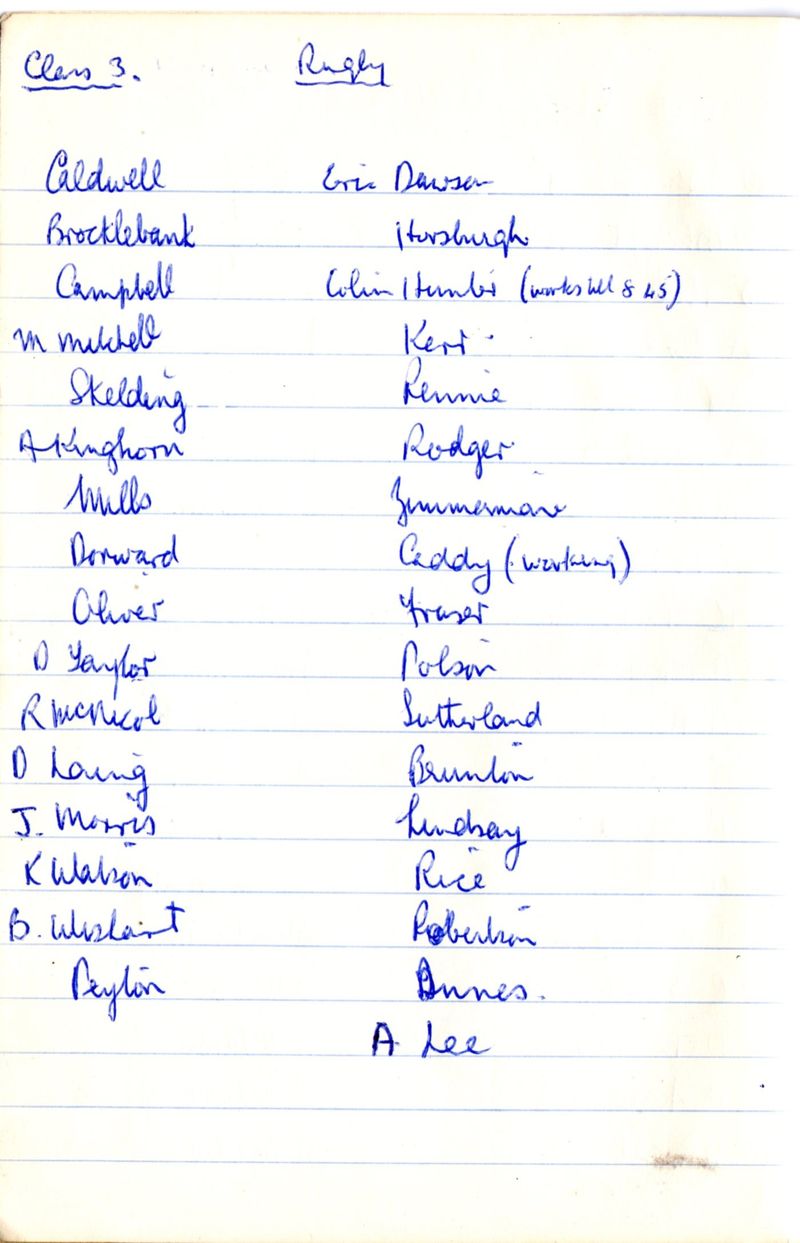 Class 3. Rugby
Caldwell Eric Dawson
Brocklebank Horsburgh
Campbell Colin Hunter (works till 8 45)
M Mitchell Kerr
Skelding Rennie
A Kinghorn Rodger
Mills Zimmerman
Dorward Caddy (working)
Oliver Fraser
D Taylor Polson
R McNicol Sutherland
D Laing Brunton
J. Morris Lindsay
K Watson Rice
B. Wishart Robertson
Peyton Innes.
A Lee